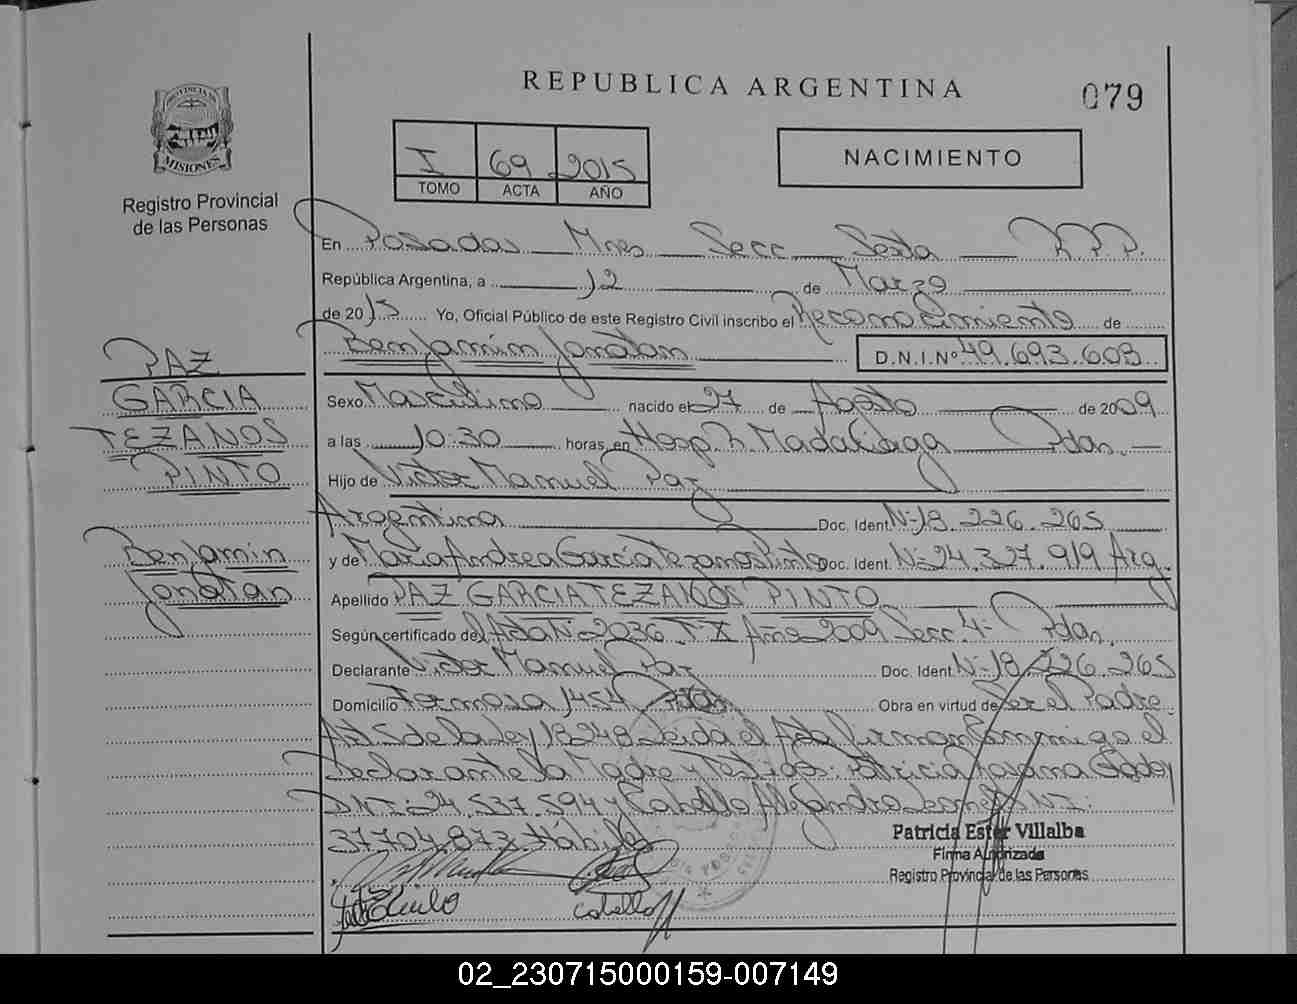 REPUBLICA ARGENTINA
079
PROVINCIA DE
MISIONES
Registro Provincial
de las Personas
I 69 2015
TOMO ACTA AÑO
NACIMIENTO
En Posadas Mnes Secc Sexta R.P.P.
República Argentina, a 12 de Marzo
de 2015 Yo, Oficial Público de este Registro Civil inscribo el Reconocimiento de
Benjamín Jonatan D.N.I.Nº 49.693.603
PAZ
GARCIA
TEZANOS
PINTO
Benjamin
Jonatan
Sexo Masculino nacido el 27 de Agosto de 2009
a las 10:30 horas, en Hosp. R. Madariaga Pdas.
Hijo de Victor Manuel Paz
Argentina Doc. Ident. Nº 18.226.265
y de María Andrea García Tezanos Pinto Doc. Ident. Nº 24.327.919 Arg.
Apellido PAZ GARCIA TEZANOS PINTO
Según certificado de Acta Nº 2036 T X Año 2009 Secc 4º Pdas.
Declarante Victor Manuel Paz Doc. Ident. Nº 18.226.265
Domicilio Formosa 1454 Pdas Obra en virtud de Ser el Padre
Art 5 de la Ley 18248 Leida el Acta firman conmigo el
Declarante la Madre y Testigos: Patricia Rosana Godoy
DNI: 24.537.594 y Cabello Alejandro Leonel DNI:
37.704.873. Hábiles
Patricia Ester Villalba
Firma Autorizada
Registro Provincial de las Personas
Cabello
02_230715000159-007149